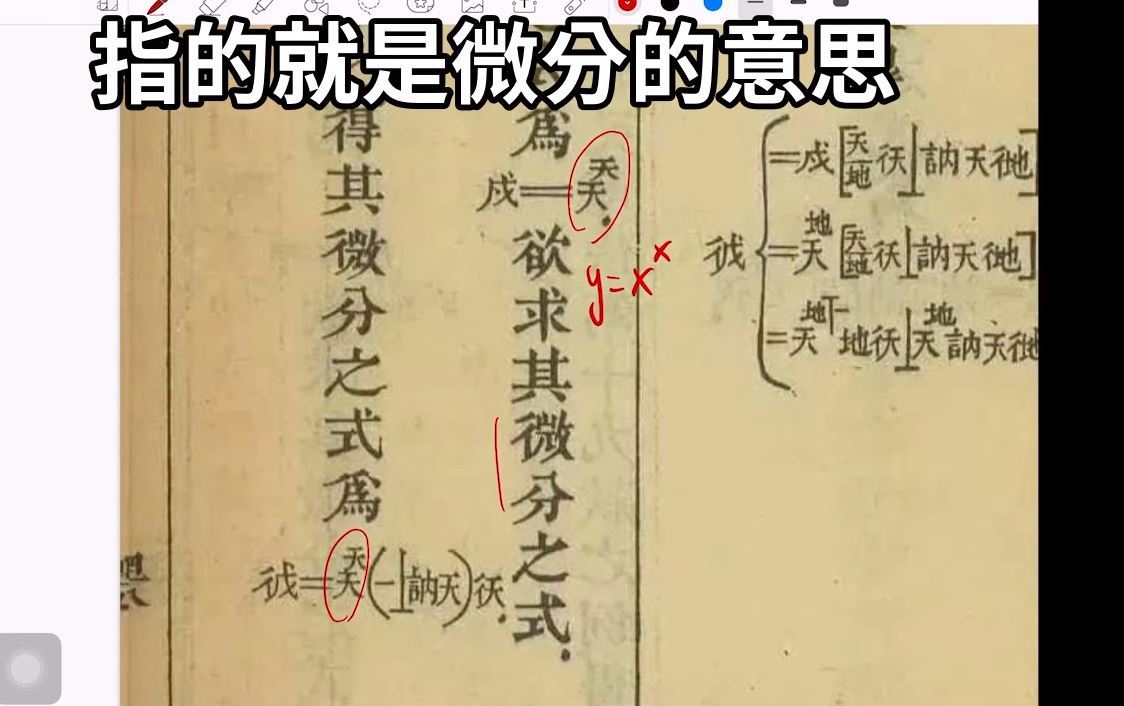 指的就是微分的意思
=戍[天/地 彳天⊥訥天彳地]
彳戍 =天^地[天/地 彳天⊥訥天彳地]
=天^(地丅一)地彳天⊥天^地訥天彳地
爲
戍=天^天
欲求其微分之式
y=x^x
得其微分之式爲
彳戍=天^天(一⊥訥天)彳天